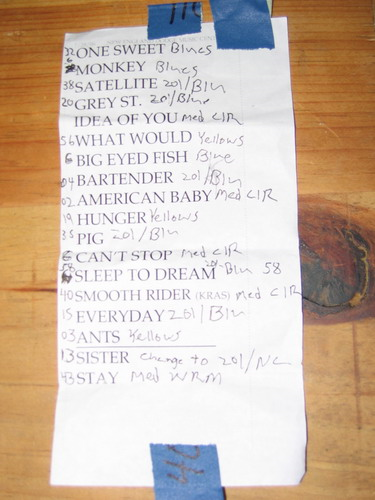 32 ONE SWEET Blues
MONKEY Blues
38 SATELLITE 201/Blu
20 GREY ST. 201/Blue
IDEA OF YOU med CLR
56 WHAT WOULD Yellows
6 BIG EYED FISH Blue
04 BARTENDER 201/Blu
02 AMERICAN BABY Med CLR
19 HUNGER Yellows
35 PIG 201/Blu
CAN'T STOP med CLR
SLEEP TO DREAM 201 Blu 58
40 SMOOTH RIDER (KRAS) Med CLR
15 EVERYDAY 201/Blu
03 ANTS Yellows
13 SISTER change to 201/NC
43 STAY Med WRM